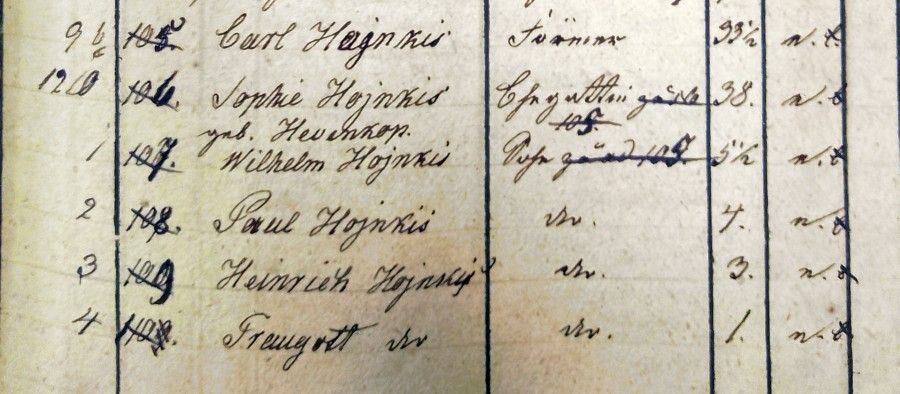 96 105. Carl Hajnkis Förmer 33½ n. t.
120 106. Sophie Hojnkis Ehegattin 38. n. t.
geb. Hevenkop. 105.
1 107. Wilhelm Hojnkis Sohn 105. 5½ n. t.
2 108. Paul Hojnkis do. 4. n. t.
3 109 Heinrich Hojnkis do. 3. n. t.
4 Traugott do do. 1. n. t.